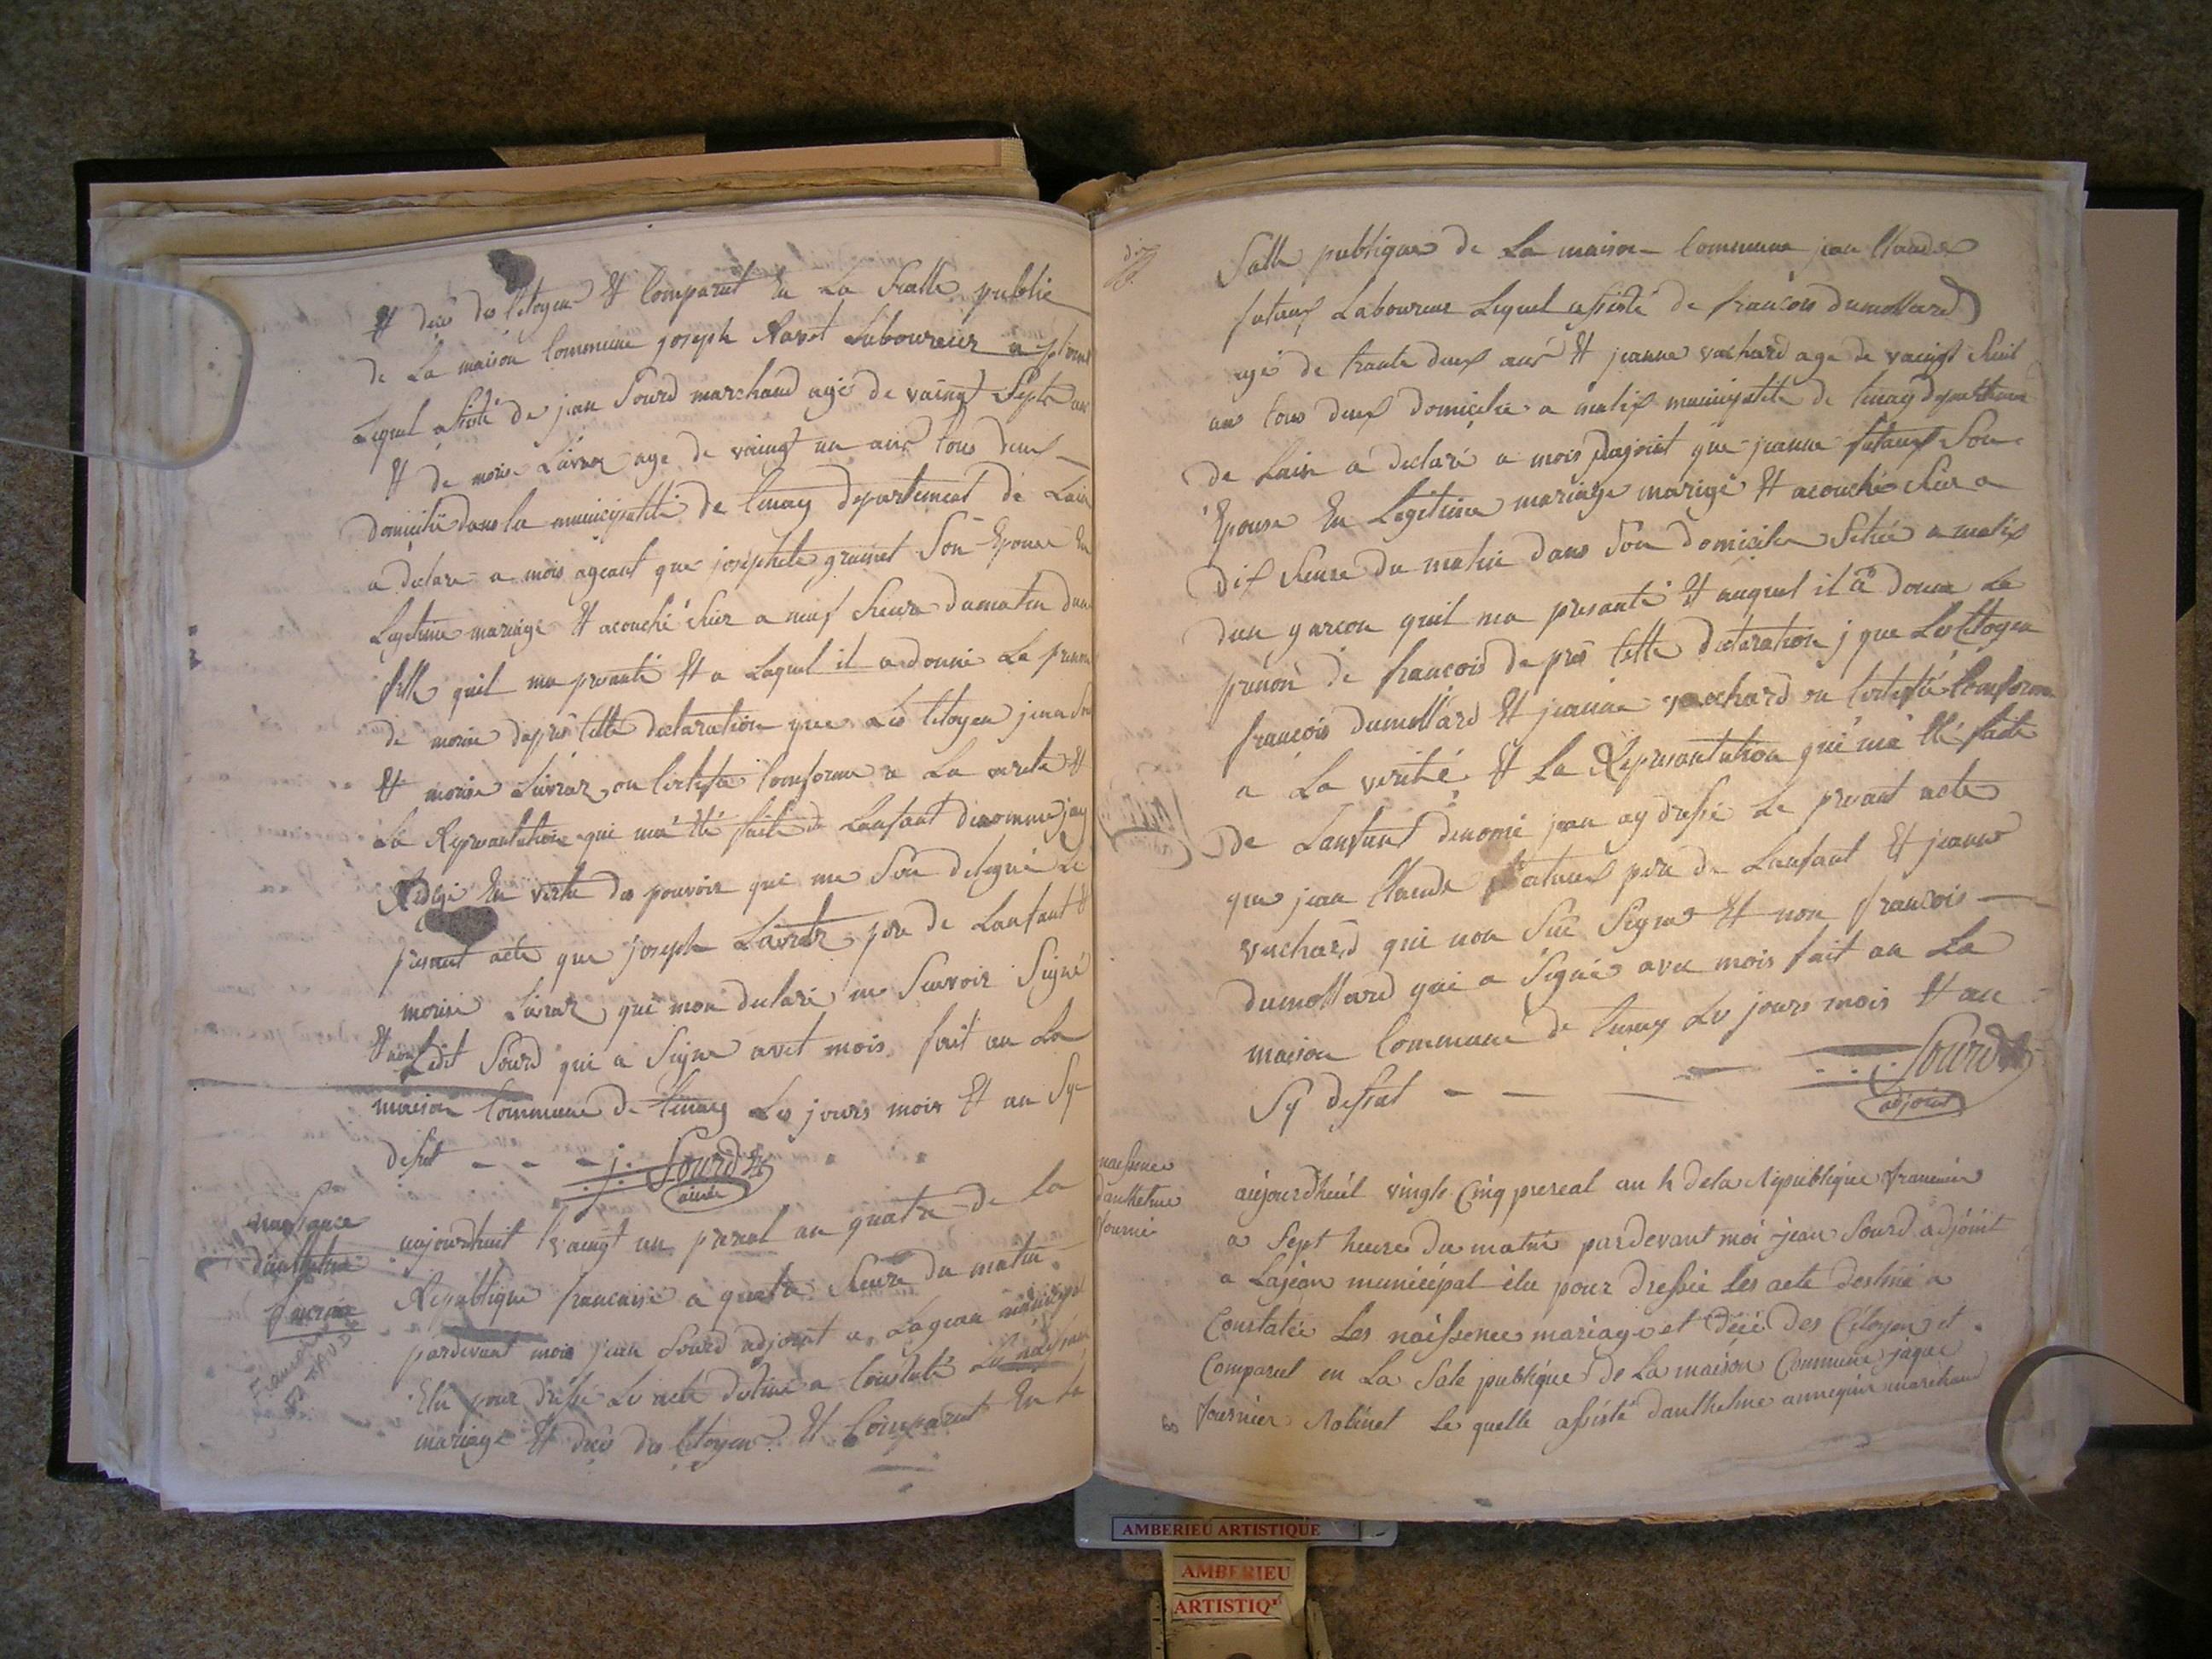 Et décé des Citoyen Et Comparut En La Salle public
de La maison Commune joseph Ravet Laboureur a
Lequel assisté de jean Sourd marchand agé de vaingt Sept ans
Et de moise Livraz age de vaingt un ans tous deux
domicilié dans la municipalité de tenay departement de Lain
a declare a mois ageant que josephete grumet Son Epouse En
Legitime mariage Et acouché hier a neuf heure du matin dune
fille quil ma presanté Et a Laquel il a donné Le prenon
de morise dapres Cette declaration que Les Citoyen jean Sourd
Et morise Livraz on Certifié Comforme a La verite Et
La Represantation qui ma été faite de Lanfant denommé jay
Redigé En vertu des pouvoir que me Son delegué Le
presant acte que joseph Livraz pere de Lanfant Et
morise Livraz qui mon declaré ne Savoir Signé
Et non Ledit Sourd qui a Signe avec mois fait en La
maison Commune de tenay Les jours mois Et an Sy
desut - - - j. Sourd
ainé
naissance
danthelme
fournier
Francois
STATUEX
aujourdhuit vaingt un prereal an quatre de la
Republique francaise a quatre heure du matin
pardevant mois jean Sourd adjoint a Lagean municipal
Elu pour dressé Les acte destiné a Constaté Les naissance
mariage Et décé des Citoyen Et Comparut En la
dix
Salle publique de La maison Commune jean Claude
Statuex Laboureur Lequel assisté de francois dumollard
agé de trante deux ans Et jeanne vuchard age de vaingt huit
ans tous deux domicilié a malix municipalité de tenay departement
de Lain a declaré a mois dajoint que jeanne Statuex Son
Epouse En Legitime mariage Et acouché hier a
dix heure du matin dans Son domicile Sitüé a malix
dun garcon quil ma presanté Et auquel il a donné Le
prenon de francois dapres Cette declaration que Les Citoyen
francois dumollard Et jeanne vuchard on Certifié Comforme
a La verité Et La Represantation qui ma été faite
de Lanfant denomé jean ay dressé Le presant acte
que jean Claude Statuex pere de Lanfant Et jeanne
vuchard qui non Sue Signé Et non francois
dumollard qui a Signé avec mois fait en La
maison Commune de tenay Les jours mois Et an
Sy dessut - - - Sourd
adjoint
naissance
danthelme
fournié
aujourdheüit vingts Cinq prereal an 4 de la Republique francaise
a Sept heure du matin pardevant moi jean Sourd adjoint
a Lajean municipal élu pour dressée Les acte destiné a
Constatée Les naissence mariage et décé des Citoyen et
Comparut en La Sale publique de La maison Commune jaque
fournier Robinet Le quelle assisté danthelme annequin marchand
AMBERIEU ARTISTIQUE
AMBERIEU
ARTISTIQU